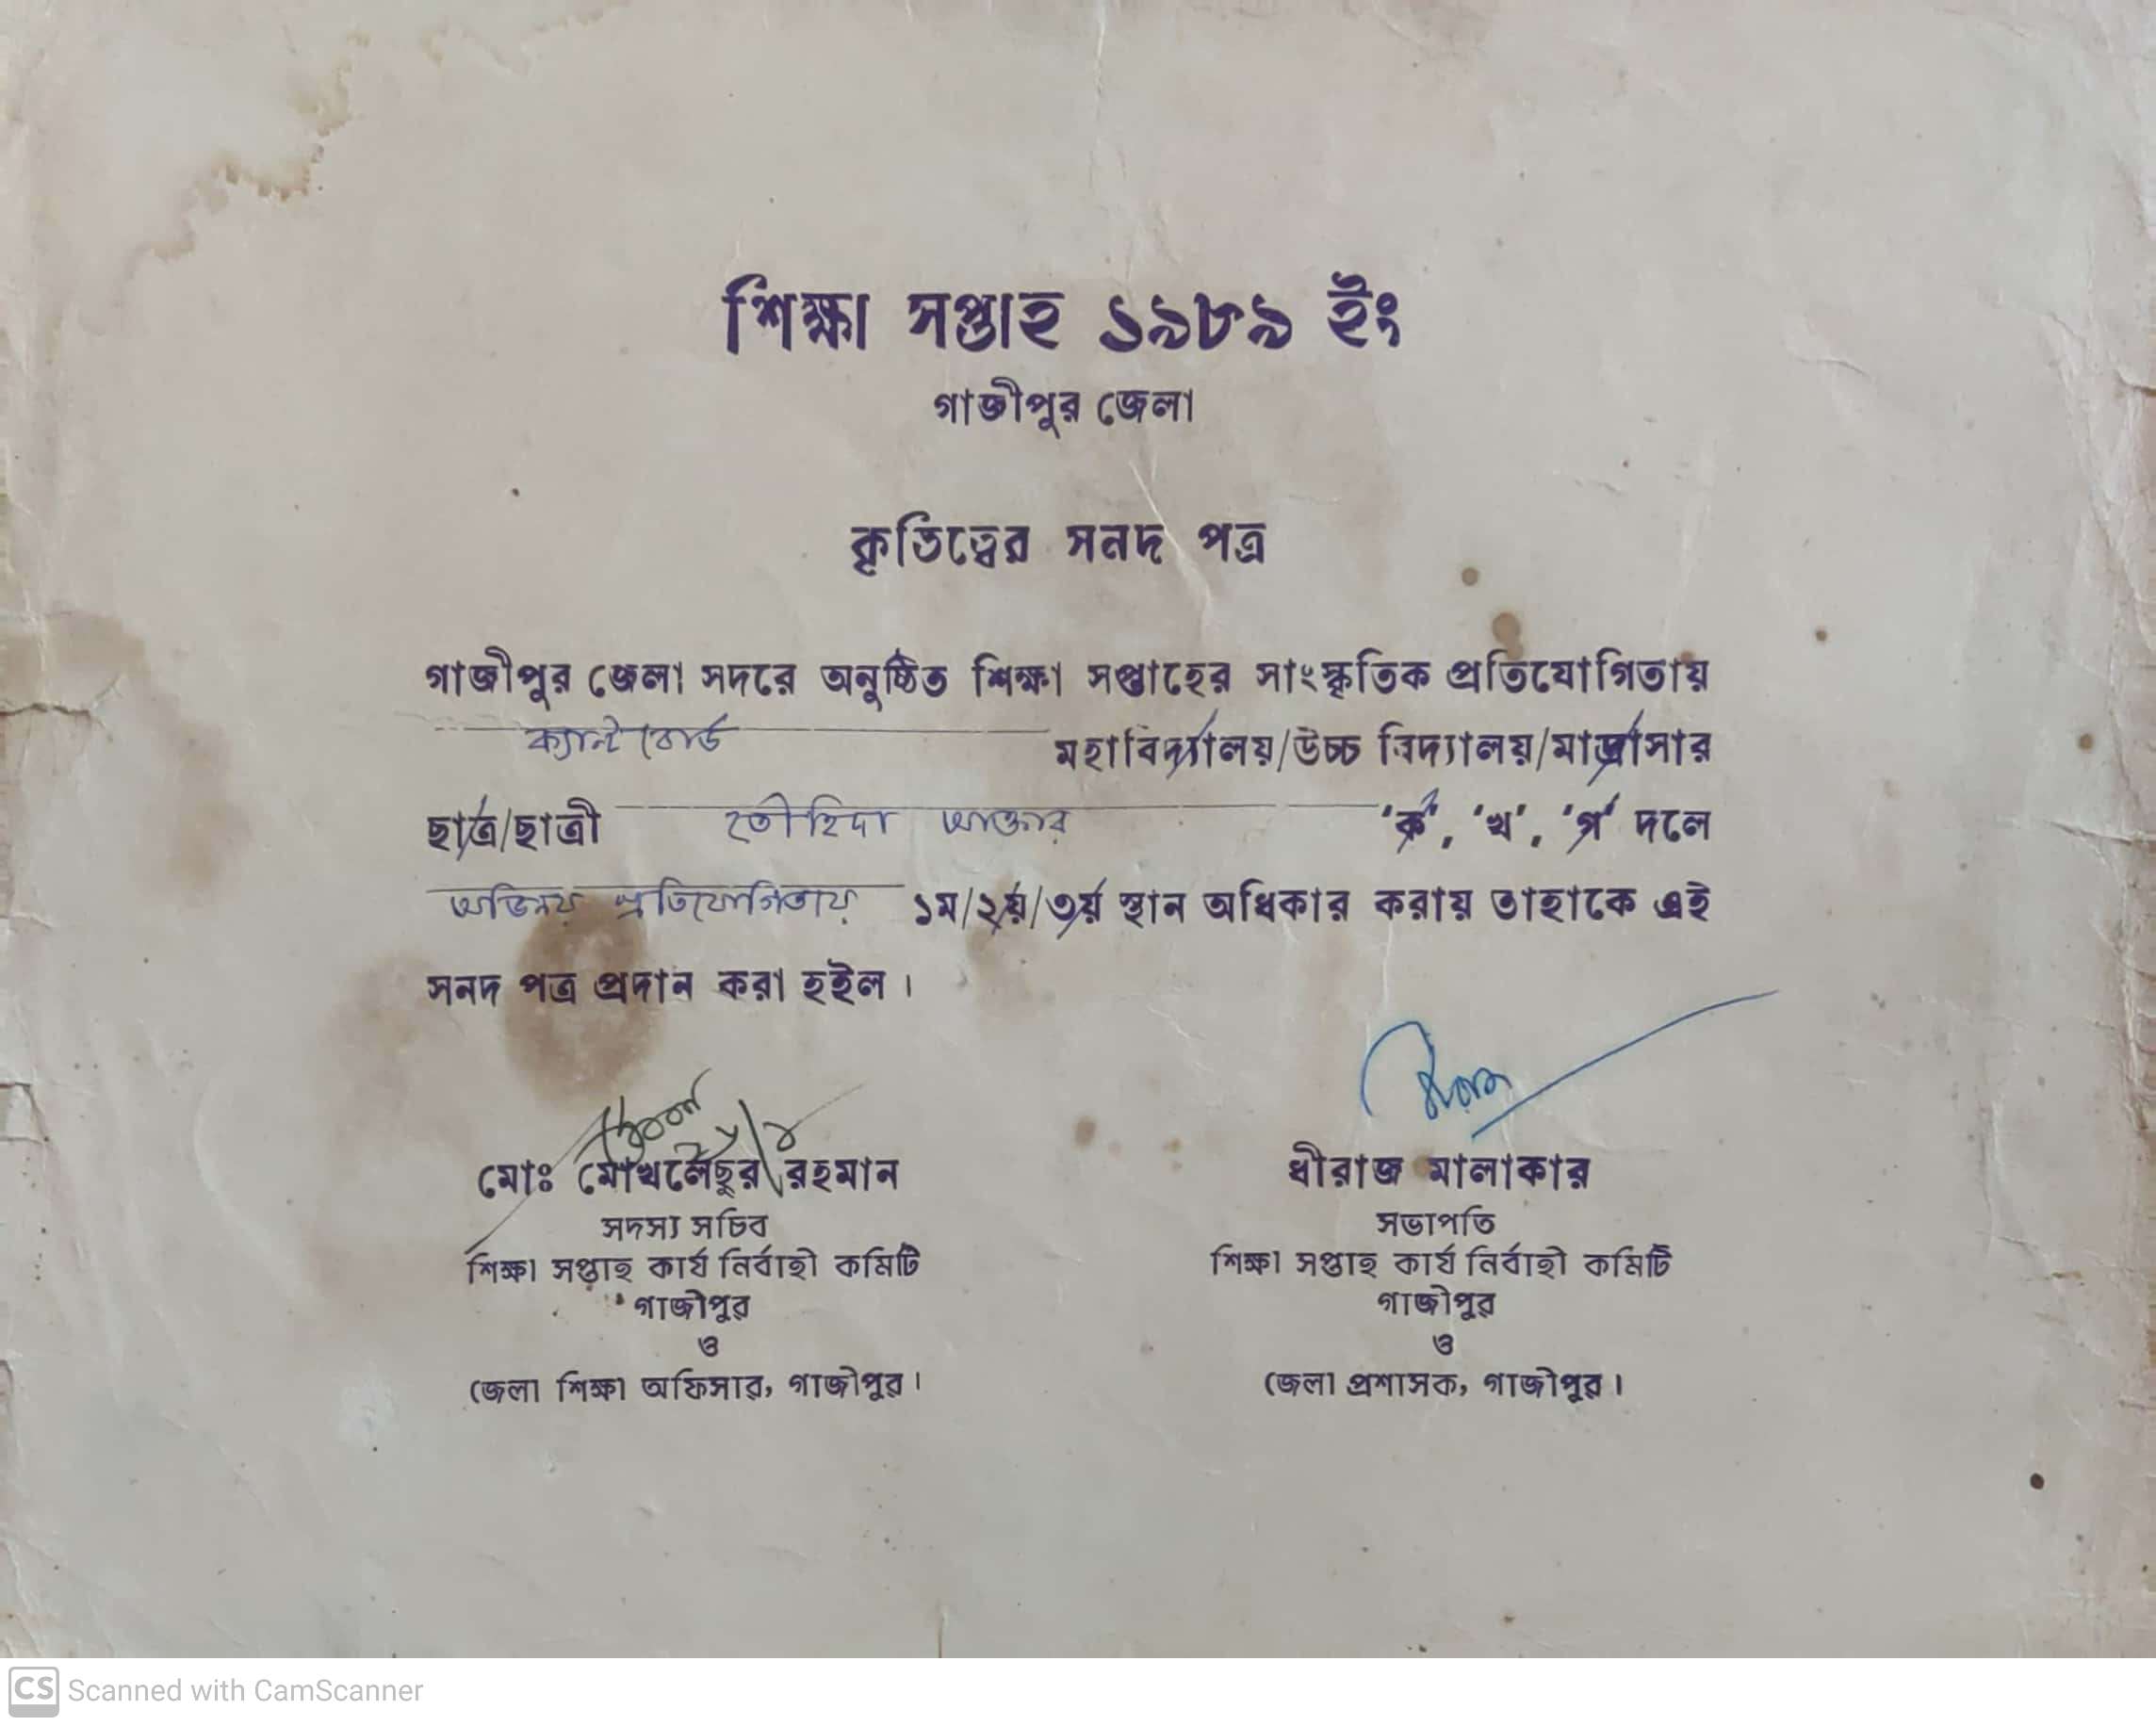 শিক্ষা সপ্তাহ ১৯৮৯ ইং
গাজীপুর জেলা
কৃতিত্বের সনদ পত্র
গাজীপুর জেলা সদরে অনুষ্ঠিত শিক্ষা সপ্তাহের সাংস্কৃতিক প্রতিযোগিতায়
ক্যান্ট বোর্ড মহাবিদ্যালয়/উচ্চ বিদ্যালয়/মাদ্রাসার
ছাত্র/ছাত্রী তৌহিদা আক্তার 'ক', 'খ', 'গ' দলে
অভিনয় প্রতিযোগিতায় ১ম/২য়/৩য় স্থান অধিকার করায় তাহাকে এই
সনদ পত্র প্রদান করা হইল।
মোঃ মোখলেছুর রহমান
সদস্য সচিব
শিক্ষা সপ্তাহ কার্য নির্বাহী কমিটি
গাজীপুর
ও
জেলা শিক্ষা অফিসার, গাজীপুর।
ধীরাজ মালাকার
সভাপতি
শিক্ষা সপ্তাহ কার্য নির্বাহী কমিটি
গাজীপুর
ও
জেলা প্রশাসক, গাজীপুর।
CS Scanned with CamScanner